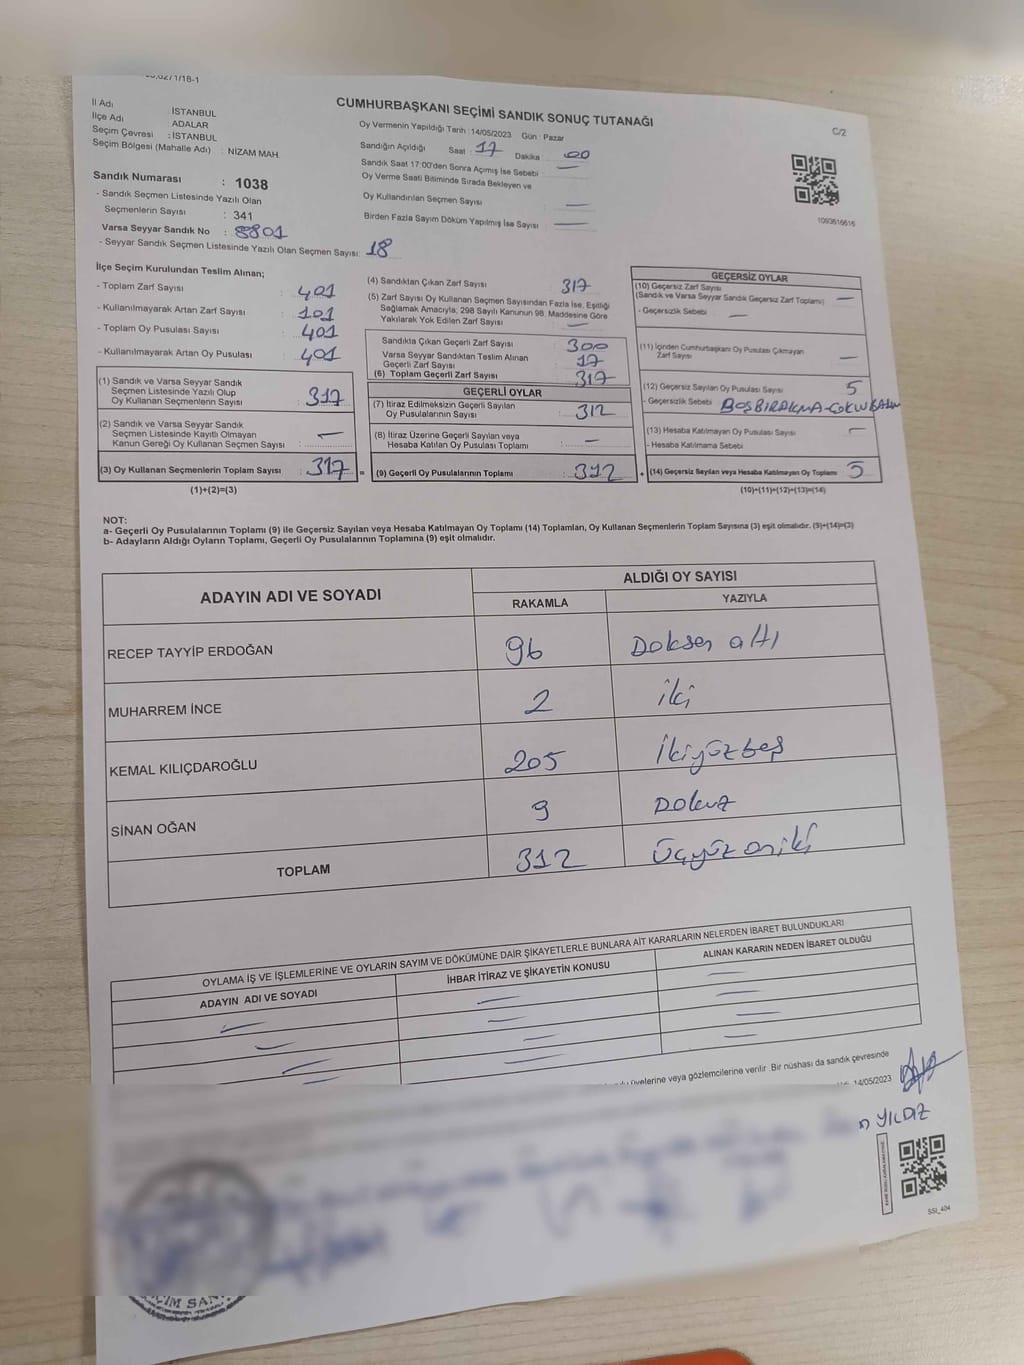 CUMHURBAŞKANI SEÇİMİ SANDIK SONUÇ TUTANAĞI
C/2
İl Adı İSTANBUL
İlçe Adı ADALAR
Seçim Çevresi : İSTANBUL
Seçim Bölgesi (Mahalle Adı) : NİZAM MAH.
Sandık Numarası : 1038
- Sandık Seçmen Listesinde Yazılı Olan
Seçmenlerin Sayısı : 341
Varsa Seyyar Sandık No : 8801
- Seyyar Sandık Seçmen Listesinde Yazılı Olan Seçmen Sayısı: 18
Oy Vermenin Yapıldığı Tarih : 14/05/2023 Gün : Pazar
Sandığın Açıldığı Saat : 17 Dakika : 00
Sandık Saat 17:00'den Sonra Açımış İse Sebebi : —
Oy Verme Saati Bitiminde Sırada Bekleyen ve
Oy Kullandırılan Seçmen Sayısı —
Birden Fazla Sayım Döküm Yapılmış İse Sayısı —
1093616616
İlçe Seçim Kurulundan Teslim Alınan;
- Toplam Zarf Sayısı : 401
- Kullanılmayarak Artan Zarf Sayısı : 101
- Toplam Oy Pusulası Sayısı : 401
- Kullanılmayarak Artan Oy Pusulası : 401
(1) Sandık ve Varsa Seyyar Sandık
Seçmen Listesinde Yazılı Olup
Oy Kullanan Seçmenlerin Sayısı : 317
(2) Sandık ve Varsa Seyyar Sandık
Seçmen Listesinde Kayıtlı Olmayan
Kanun Gereği Oy Kullanan Seçmen Sayısı : —
(3) Oy Kullanan Seçmenlerin Toplam Sayısı : 317 =
(1)+(2)=(3)
(4) Sandıktan Çıkan Zarf Sayısı : 317
(5) Zarf Sayısı Oy Kullanan Seçmen Sayısından Fazla İse, Eşitliği
Sağlamak Amacıyla; 298 Sayılı Kanunun 98. Maddesine Göre
Yakılarak Yok Edilen Zarf Sayısı : —
Sandıkta Çıkan Geçerli Zarf Sayısı : 300
Varsa Seyyar Sandıktan Teslim Alınan
Geçerli Zarf Sayısı : 17
(6) Toplam Geçerli Zarf Sayısı : 317
GEÇERLİ OYLAR
(7) İtiraz Edilmeksizin Geçerli Sayılan
Oy Pusulalarının Sayısı : 312
(8) İtiraz Üzerine Geçerli Sayılan veya
Hesaba Katılan Oy Pusulası Toplamı : —
(9) Geçerli Oy Pusulalarının Toplamı : 312 +
GEÇERSİZ OYLAR
(10) Geçersiz Zarf Sayısı
(Sandık ve Varsa Seyyar Sandık Geçersiz Zarf Toplamı) —
- Geçersizlik Sebebi : —
(11) İçinden Cumhurbaşkanı Oy Pusulası Çıkmayan
Zarf Sayısı —
(12) Geçersiz Sayılan Oy Pusulası Sayısı 5
- Geçersizlik Sebebi BOŞBIRAKMA-ÇOKLUBASIM
(13) Hesaba Katılmayan Oy Pusulası Sayısı —
- Hesaba Katılmama Sebebi
(14) Geçersiz Sayılan veya Hesaba Katılmayan Oy Toplamı : 5
(10)+(11)+(12)+(13)=(14)
NOT:
a- Geçerli Oy Pusulalarının Toplamı (9) ile Geçersiz Sayılan veya Hesaba Katılmayan Oy Toplamı (14) Toplamları, Oy Kullanan Seçmenlerin Toplam Sayısına (3) eşit olmalıdır. (9)+(14)=(3)
b- Adayların Aldığı Oyların Toplamı, Geçerli Oy Pusulalarının Toplamına (9) eşit olmalıdır.
ADAYIN ADI VE SOYADI
ALDIĞI OY SAYISI
RAKAMLA YAZIYLA
RECEP TAYYİP ERDOĞAN 96 Doksan altı
MUHARREM İNCE 2 iki
KEMAL KILIÇDAROĞLU 205 İkiyüzbeş
SİNAN OĞAN 9 Dokuz
TOPLAM 312 Üçyüz oniki
OYLAMA İŞ VE İŞLEMLERİNE VE OYLARIN SAYIM VE DÖKÜMÜNE DAİR ŞİKAYETLERLE BUNLARA AİT KARARLARIN NELERDEN İBARET BULUNDUKLARI
ADAYIN ADI VE SOYADI İHBAR İTİRAZ VE ŞİKAYETİN KONUSU ALINAN KARARIN NEDEN İBARET OLDUĞU
üyelerine veya gözlemcilerine verilir. Bir nüshası da sandık çevresinde
14/05/2023
YILDIZ
SSI_404